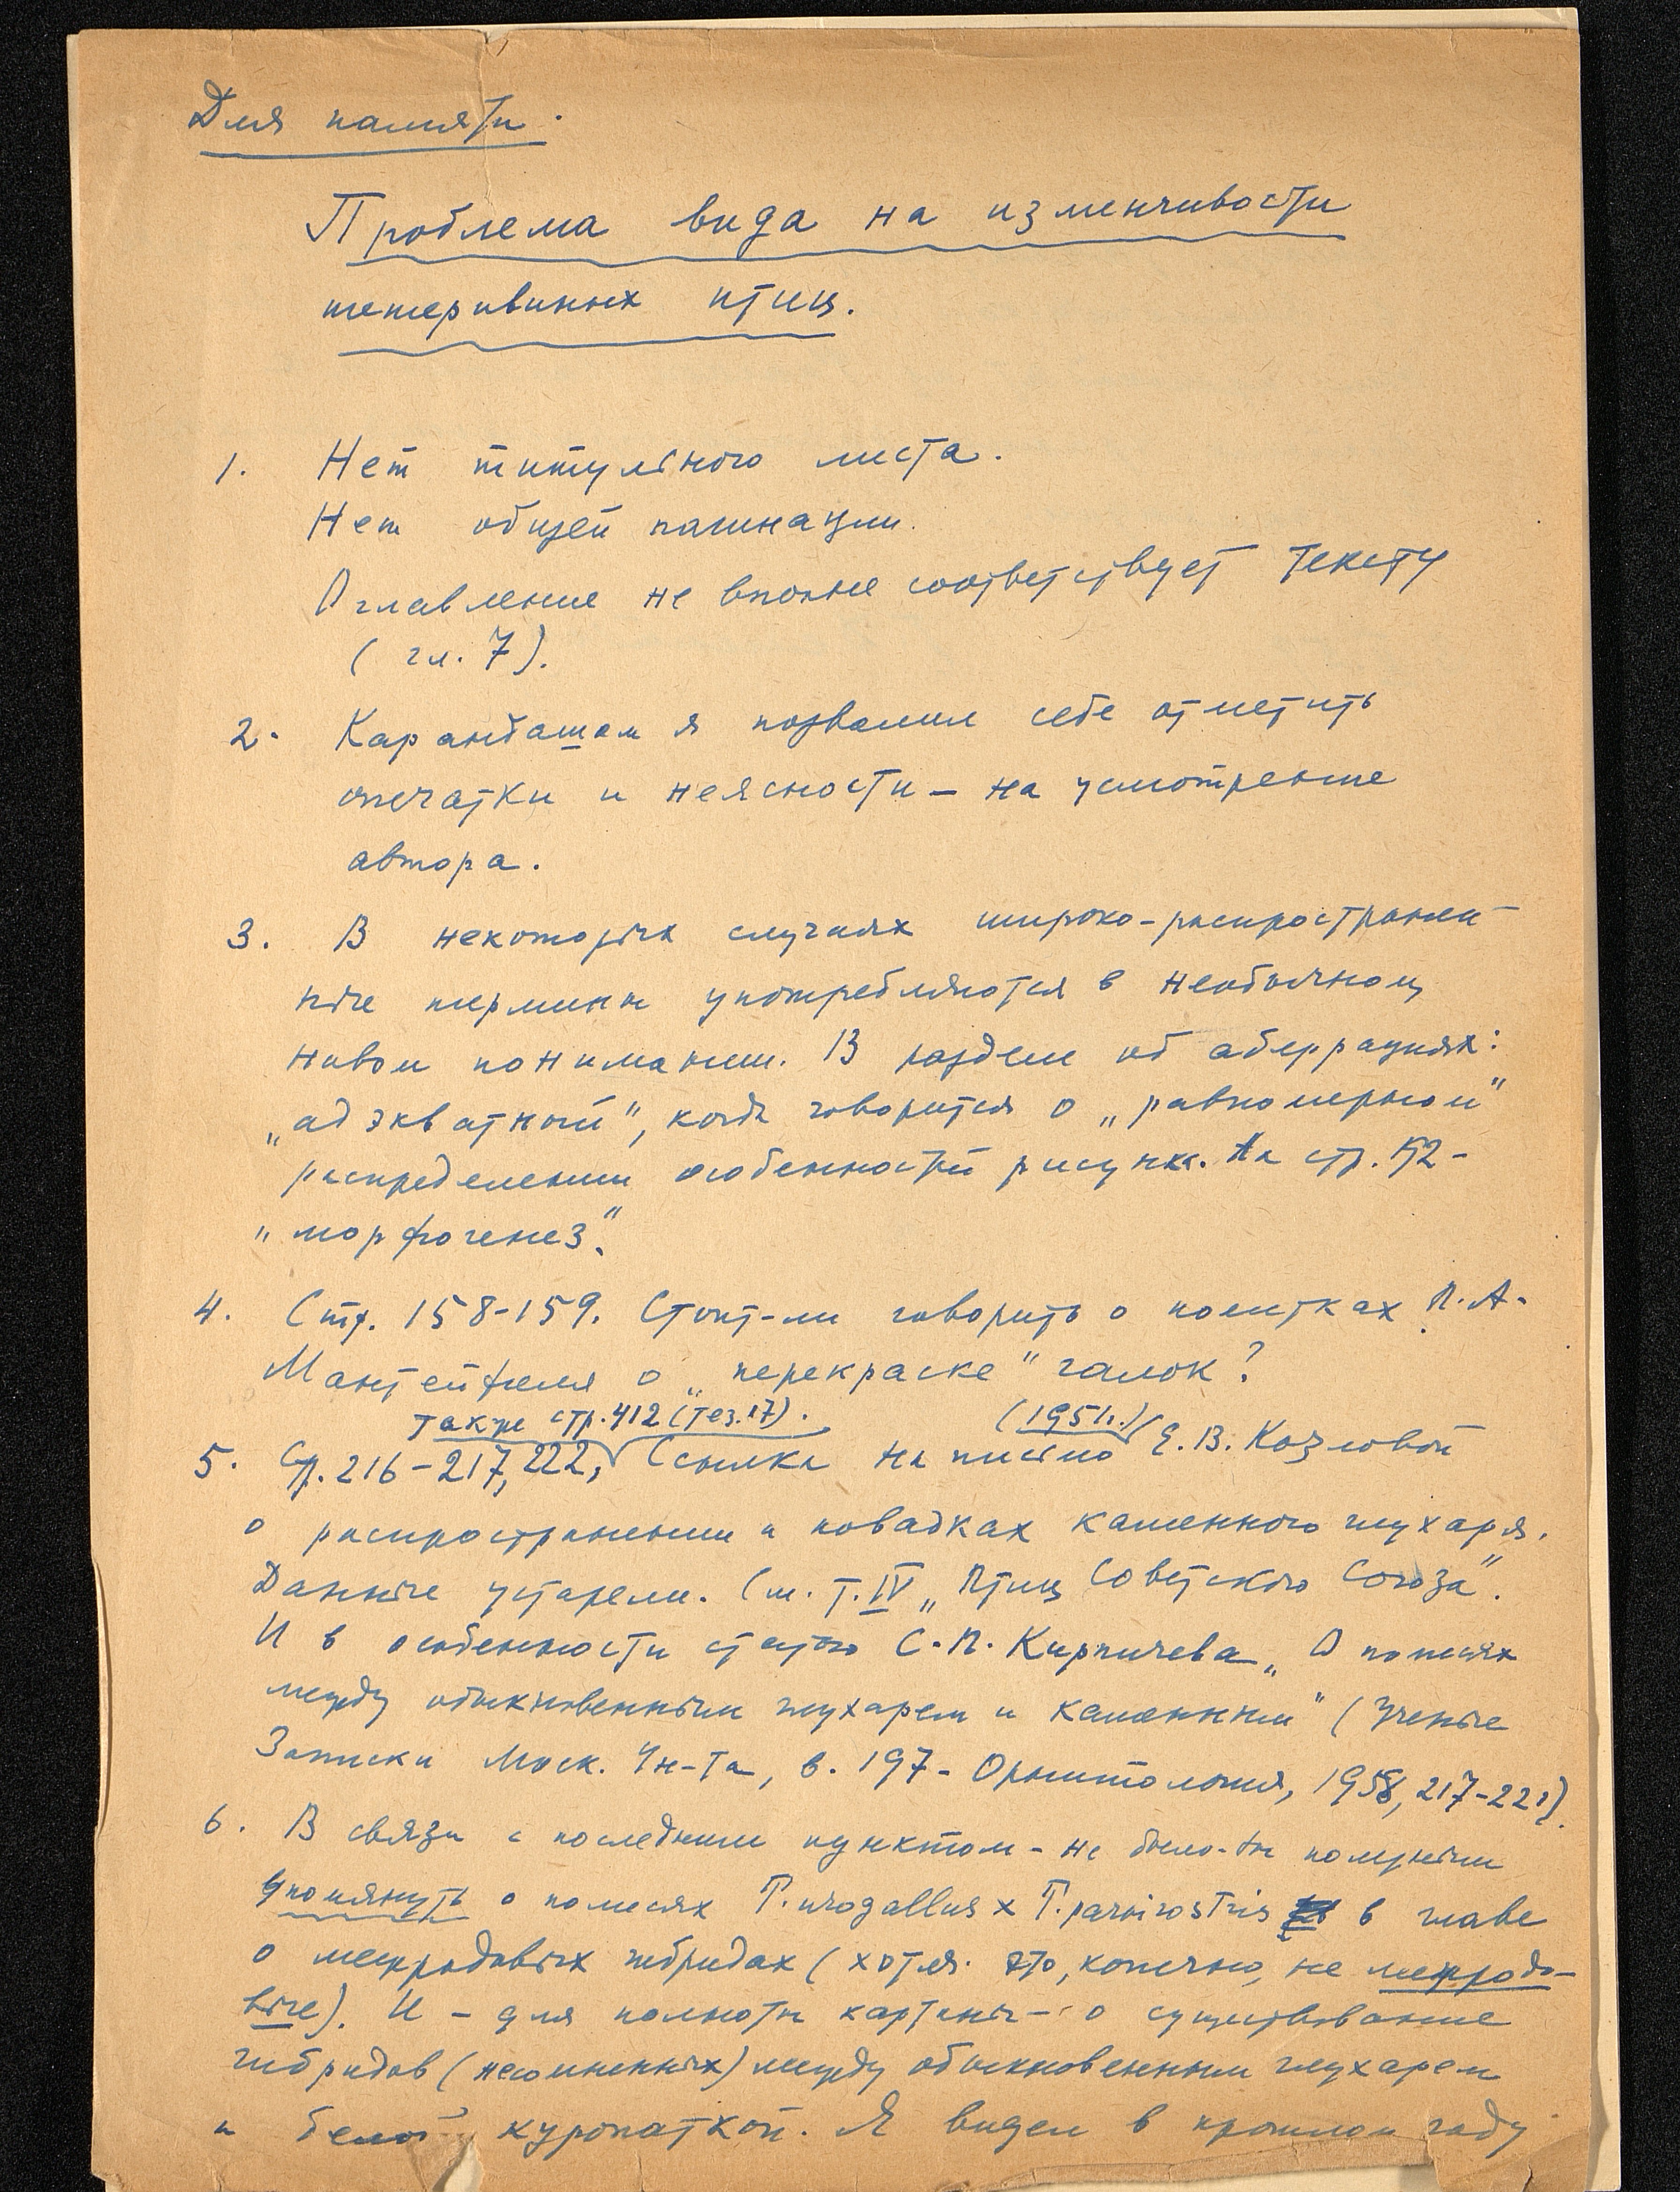 Для памяти.
Проблема вида на изменчивости
тетеривиных птиц.
1. Нет титульного листа.
Нет общей пагинации.
Оглавление не вполне соответствует тексту
(гл. 7).
2. Карандашом я позволил себе отметить
опечатки и неясности – на усмотрение
автора.
3. В некоторых случаях широко-распространен-
ные термины употребляются в необычном,
новом понимании. В разделе об аберрациях:
„адэкватной", когда говорится о „равномерном"
распределении особенностей рисунка. На стр. 52-
„морфогенез".
4. Стр. 158-159. Стоит-ли говорить о попытках П.А.
Мантейфеля о „перекраске" галок?
также стр. 412 (тез. 17). (1951г.)
5. Стр. 216-217, 222, Ссылка на письмо Е.В. Козловой
о распространении и повадках каменного глухаря.
Данные устарели. См. т. IV „Птиц Советского Союза".
И в особенности статью С.П. Кирпичева „О помесях
между обыкновенным глухарем и каменным" (Ученые
Записки Моск. Ун-та, в. 197 - Орнитология, 1958, 217-221).
6. В связи с последним пунктом - не было-бы полезным
упомянуть о помесях T. urogallus x T. parvirostris в главе
о межродовых гибридах (хотя это, конечно, не межродо-
вые). И - для полноты картины - о существование
гибридов (несомненных) между обыкновенным глухарем
и белой куропаткой. Я видел в прошлом году